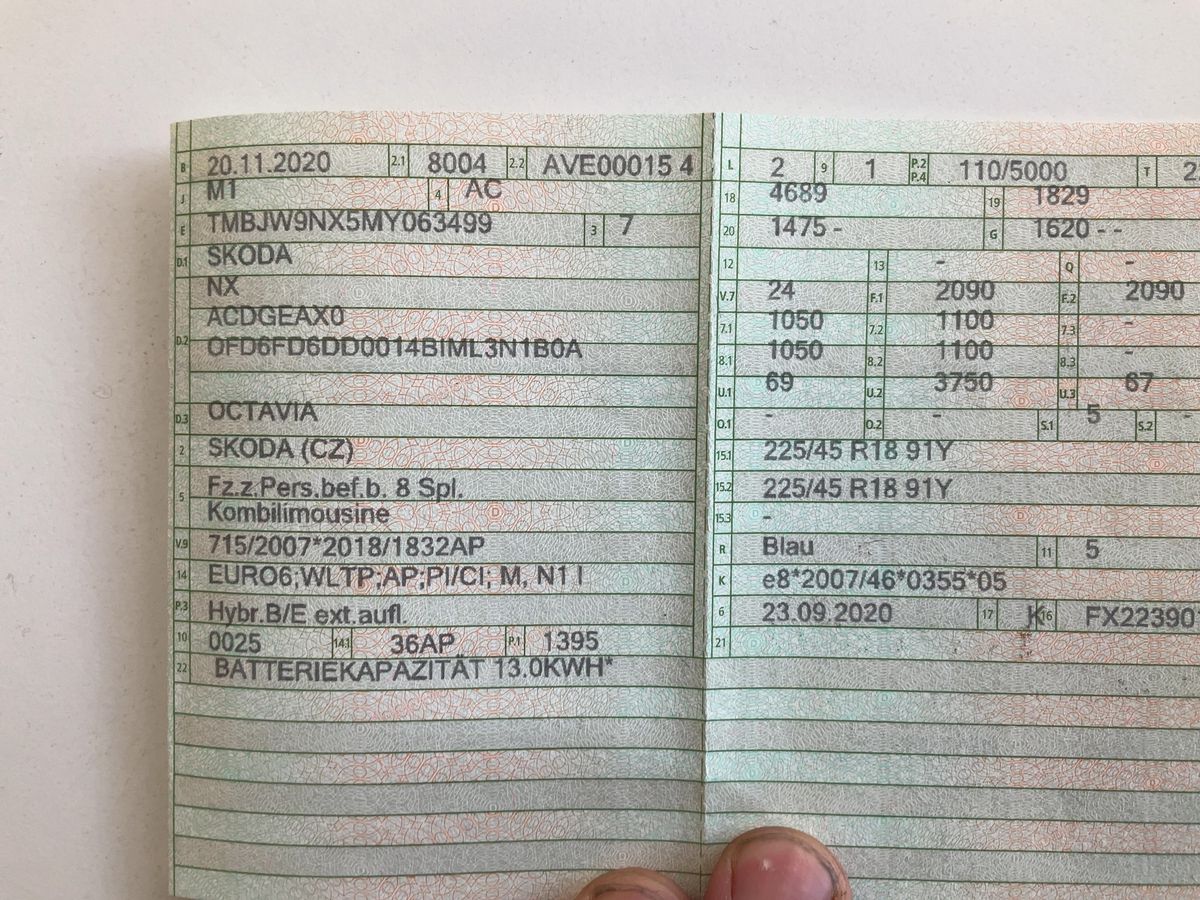 B 20.11.2020 2.1 8004 2.2 AVE00015 4
J M1 4 AC
E TMBJW9NX5MY063499 3 7
D.1 SKODA
NX
D.2 ACDGEAX0
OFD6FD6DD0014BIML3N1B0A
D.3 OCTAVIA
2 SKODA (CZ)
5 Fz.z.Pers.bef.b. 8 Spl.
Kombilimousine
V.9 715/2007*2018/1832AP
14 EURO6;WLTP;AP;PI/CI; M, N1 I
P.3 Hybr.B/E ext.aufl.
10 0025 14.1 36AP P.1 1395
22 BATTERIEKAPAZITÄT 13.0KWH*
L 2 9 1 P.2 P.4 110/5000 T
18 4689 19 1829
20 1475 - G 1620 - -
12 13 - Q -
V.7 24 F.1 2090 F.2 2090
7.1 1050 7.2 1100 7.3 -
8.1 1050 8.2 1100 8.3 -
U.1 69 U.2 3750 U.3 67
O.1 - O.2 - S.1 5 S.2 -
15.1 225/45 R18 91Y
15.2 225/45 R18 91Y
15.3 -
R Blau 11 5
K e8*2007/46*0355*05
6 23.09.2020 17 K 16 FX22390
21